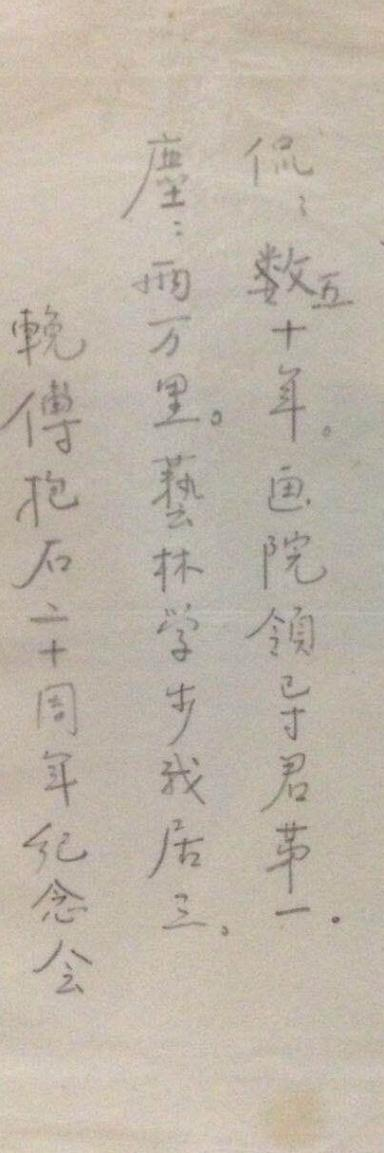 侃〻数五十年。画院領导君苐一.
塵〻两万里。藝林学步我居三。
輓傅抱石二十周年纪念会